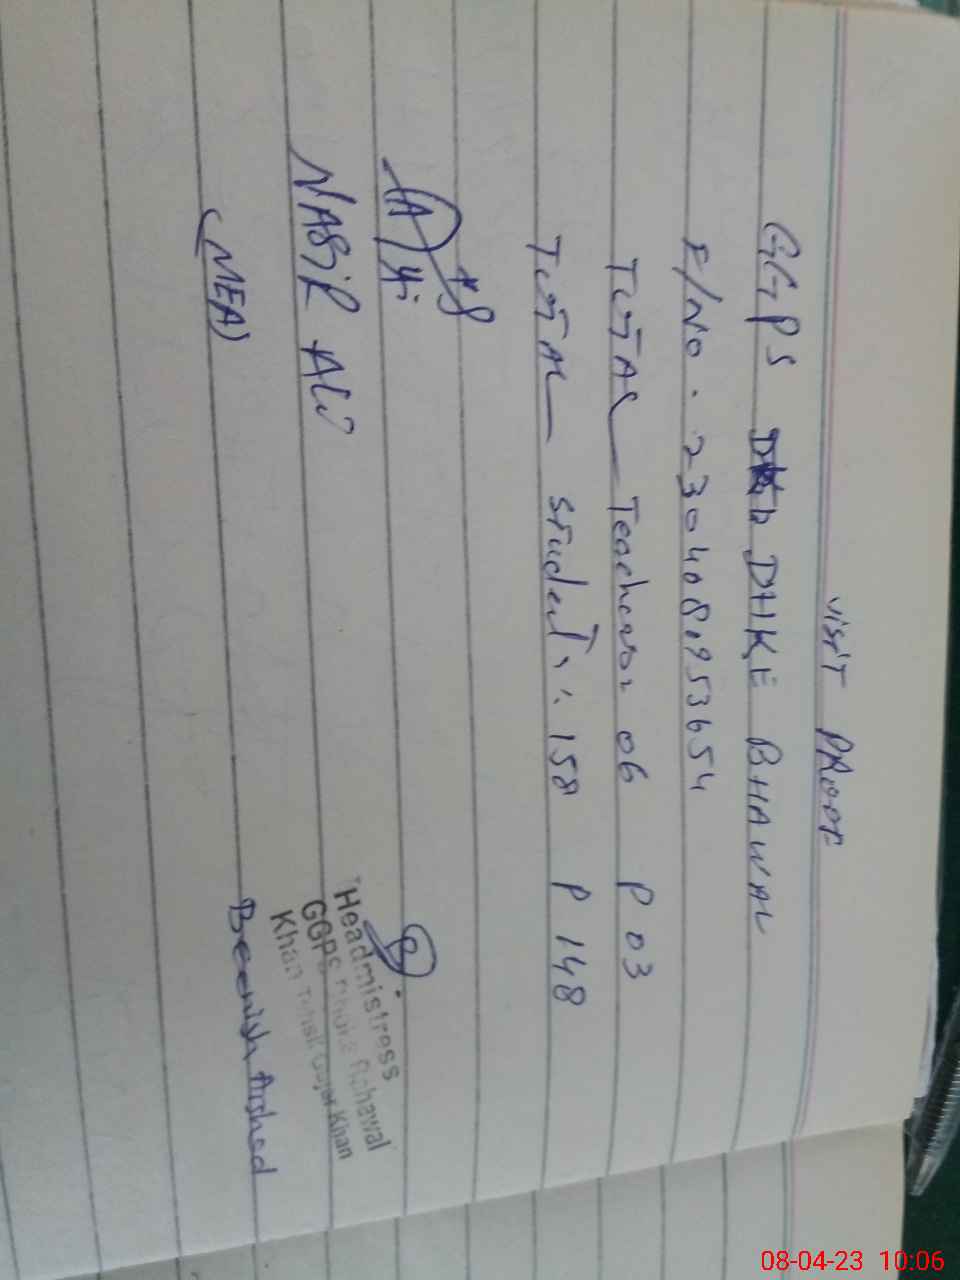 VISIT PROOF
GGPS DHKE BHAWAL
F/No. 230408.953654
TOTAL Teachers 06 P 03
TOTAL Student: 158 P 148
NASIR ALI
(MEA)
Headmistress
GGPS
Khan Tehsil Gujar Khan
Beenish Arshad
08-04-23 10:06